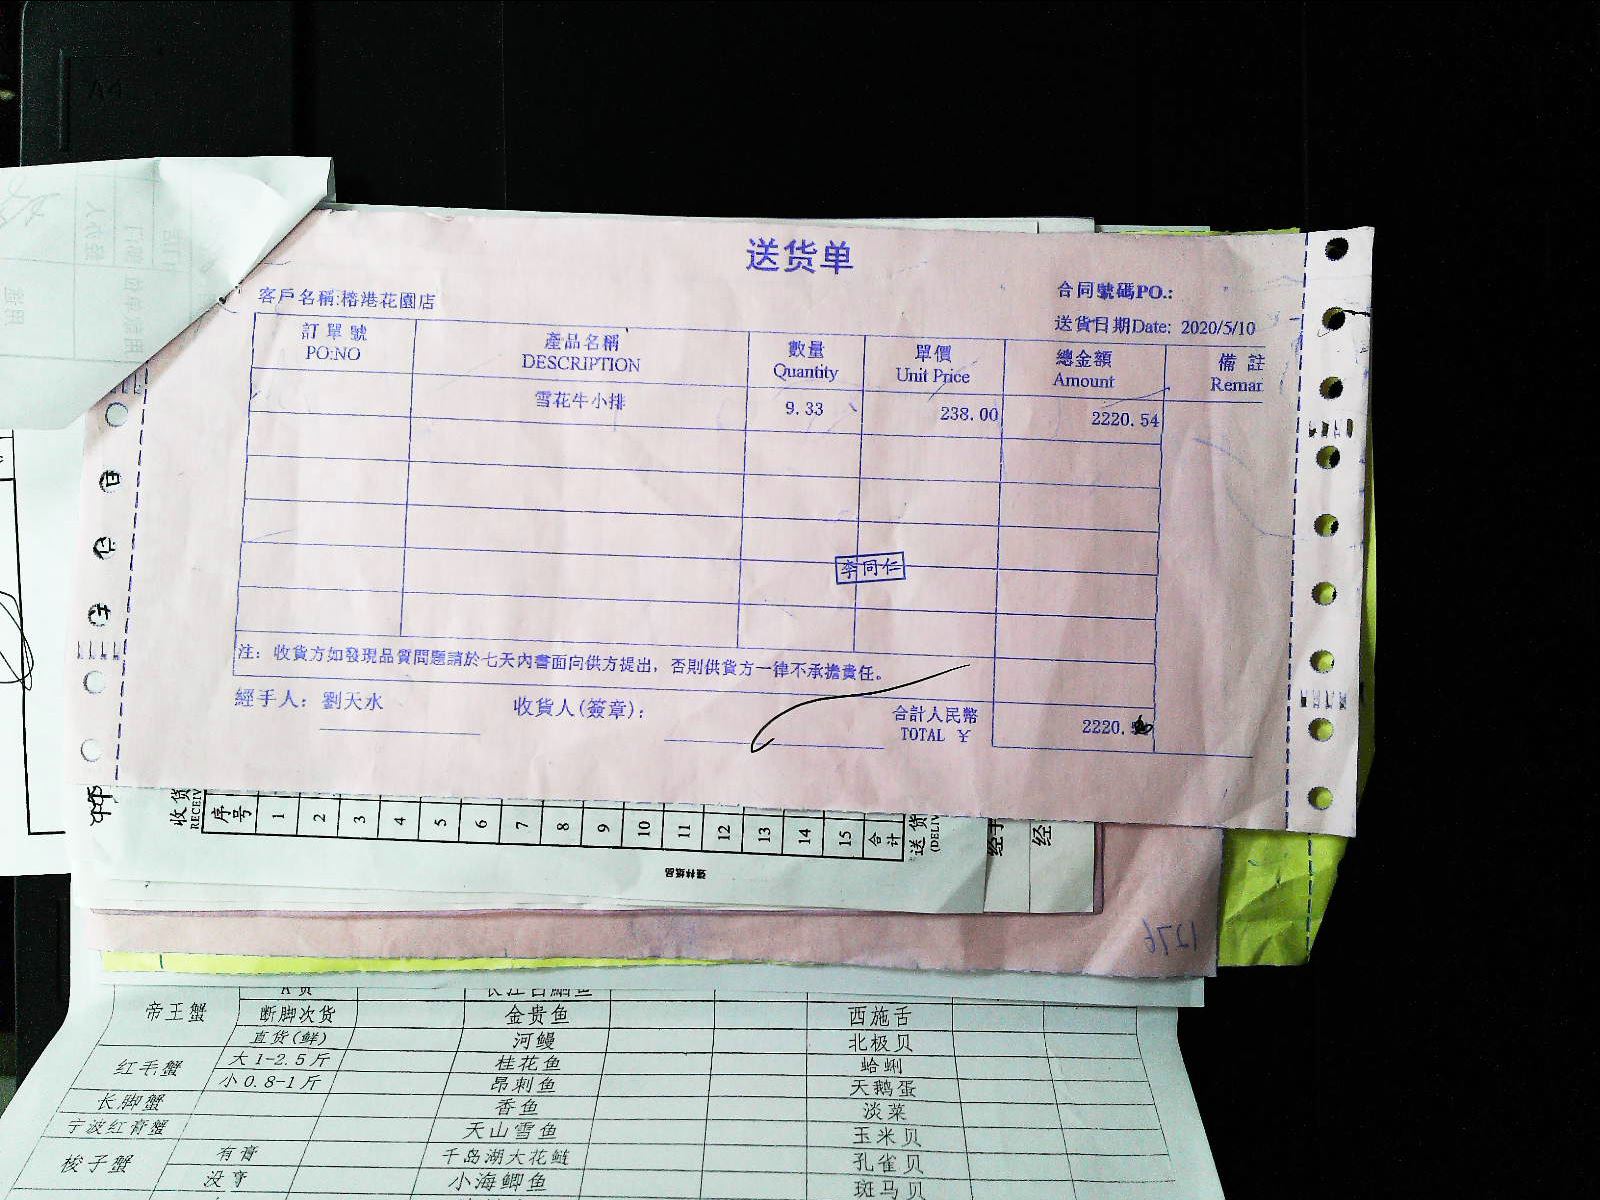 送货单
客戶名稱:榕港花園店
合同號碼PO.:
送貨日期Date: 2020/5/10
訂單號 產品名稱 數量 單價 總金額 備註
PO:NO DESCRIPTION Quantity Unit Price Amount Remar
雪花牛小排 9.33 238.00 2220.54
李同仁
注：收貨方如發現品質問題請於七天內書面向供方提出，否則供貨方一律不承擔責任。
經手人：劉天水 收貨人(簽章)： 合計人民幣
TOTAL ¥ 2220.
收货
RECEIV
序号 1 2 3 4 5 6 7 8 9 10 11 12 13 14 15 合计
送货
(DELIV
经手
经
帝王蟹 断脚次货 金贵鱼 西施舌
直货(鲜) 河鳗 北极贝
红毛蟹 大1-2.5斤 桂花鱼 蛤蜊
小0.8-1斤 昂刺鱼 天鹅蛋
长脚蟹 香鱼 淡菜
宁波红膏蟹 天山雪鱼 玉米贝
梭子蟹 有膏 千岛湖大花鲢 孔雀贝
没膏 小海鲫鱼 斑马贝